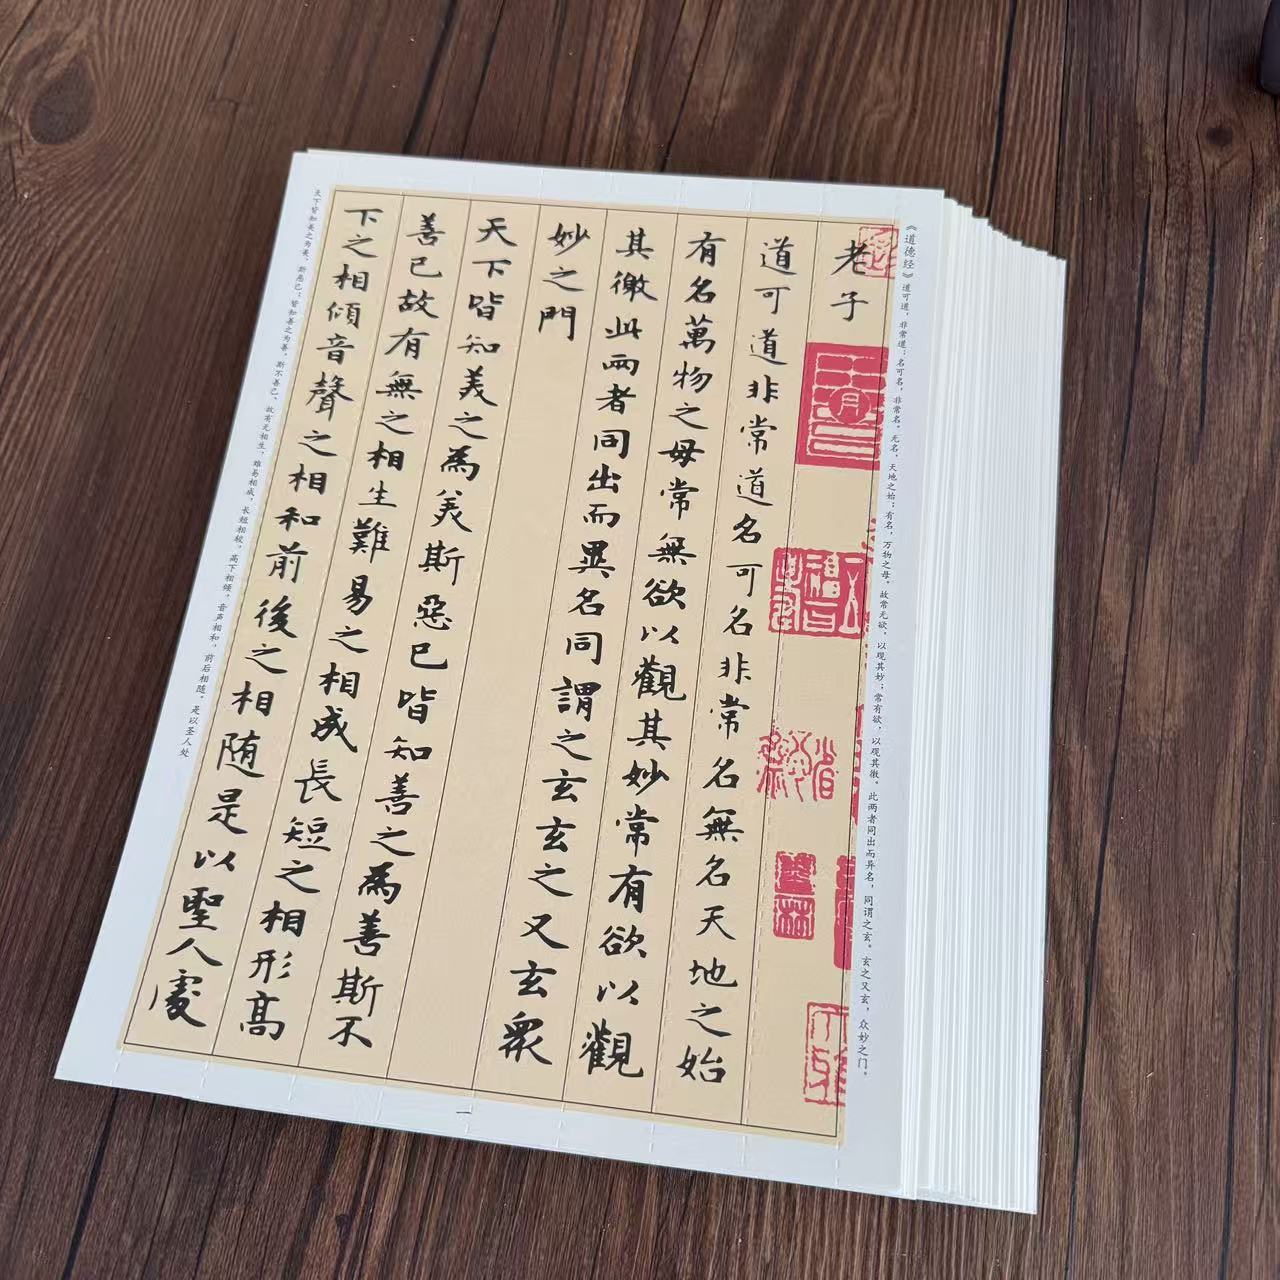 《道德经》道可道，非常道；名可名，非常名。无名，天地之始；有名，万物之母。故常无欲，以观其妙；常有欲，以观其徼。此两者同出而异名，同谓之玄。玄之又玄，众妙之门。
老子
道可道非常道名可名非常名無名天地之始
有名萬物之母常無欲以觀其妙常有欲以觀
其徼此兩者同出而異名同謂之玄玄之又玄衆
妙之門
天下皆知美之為美斯惡已皆知善之為善斯不
善已故有無之相生難易之相成長短之相形高
下之相傾音聲之相和前後之相随是以聖人處
天下皆知美之为美，斯恶已；皆知善之为善，斯不善已。故有无相生，难易相成，长短相较，高下相倾，音声相和，前后相随。是以圣人处
一